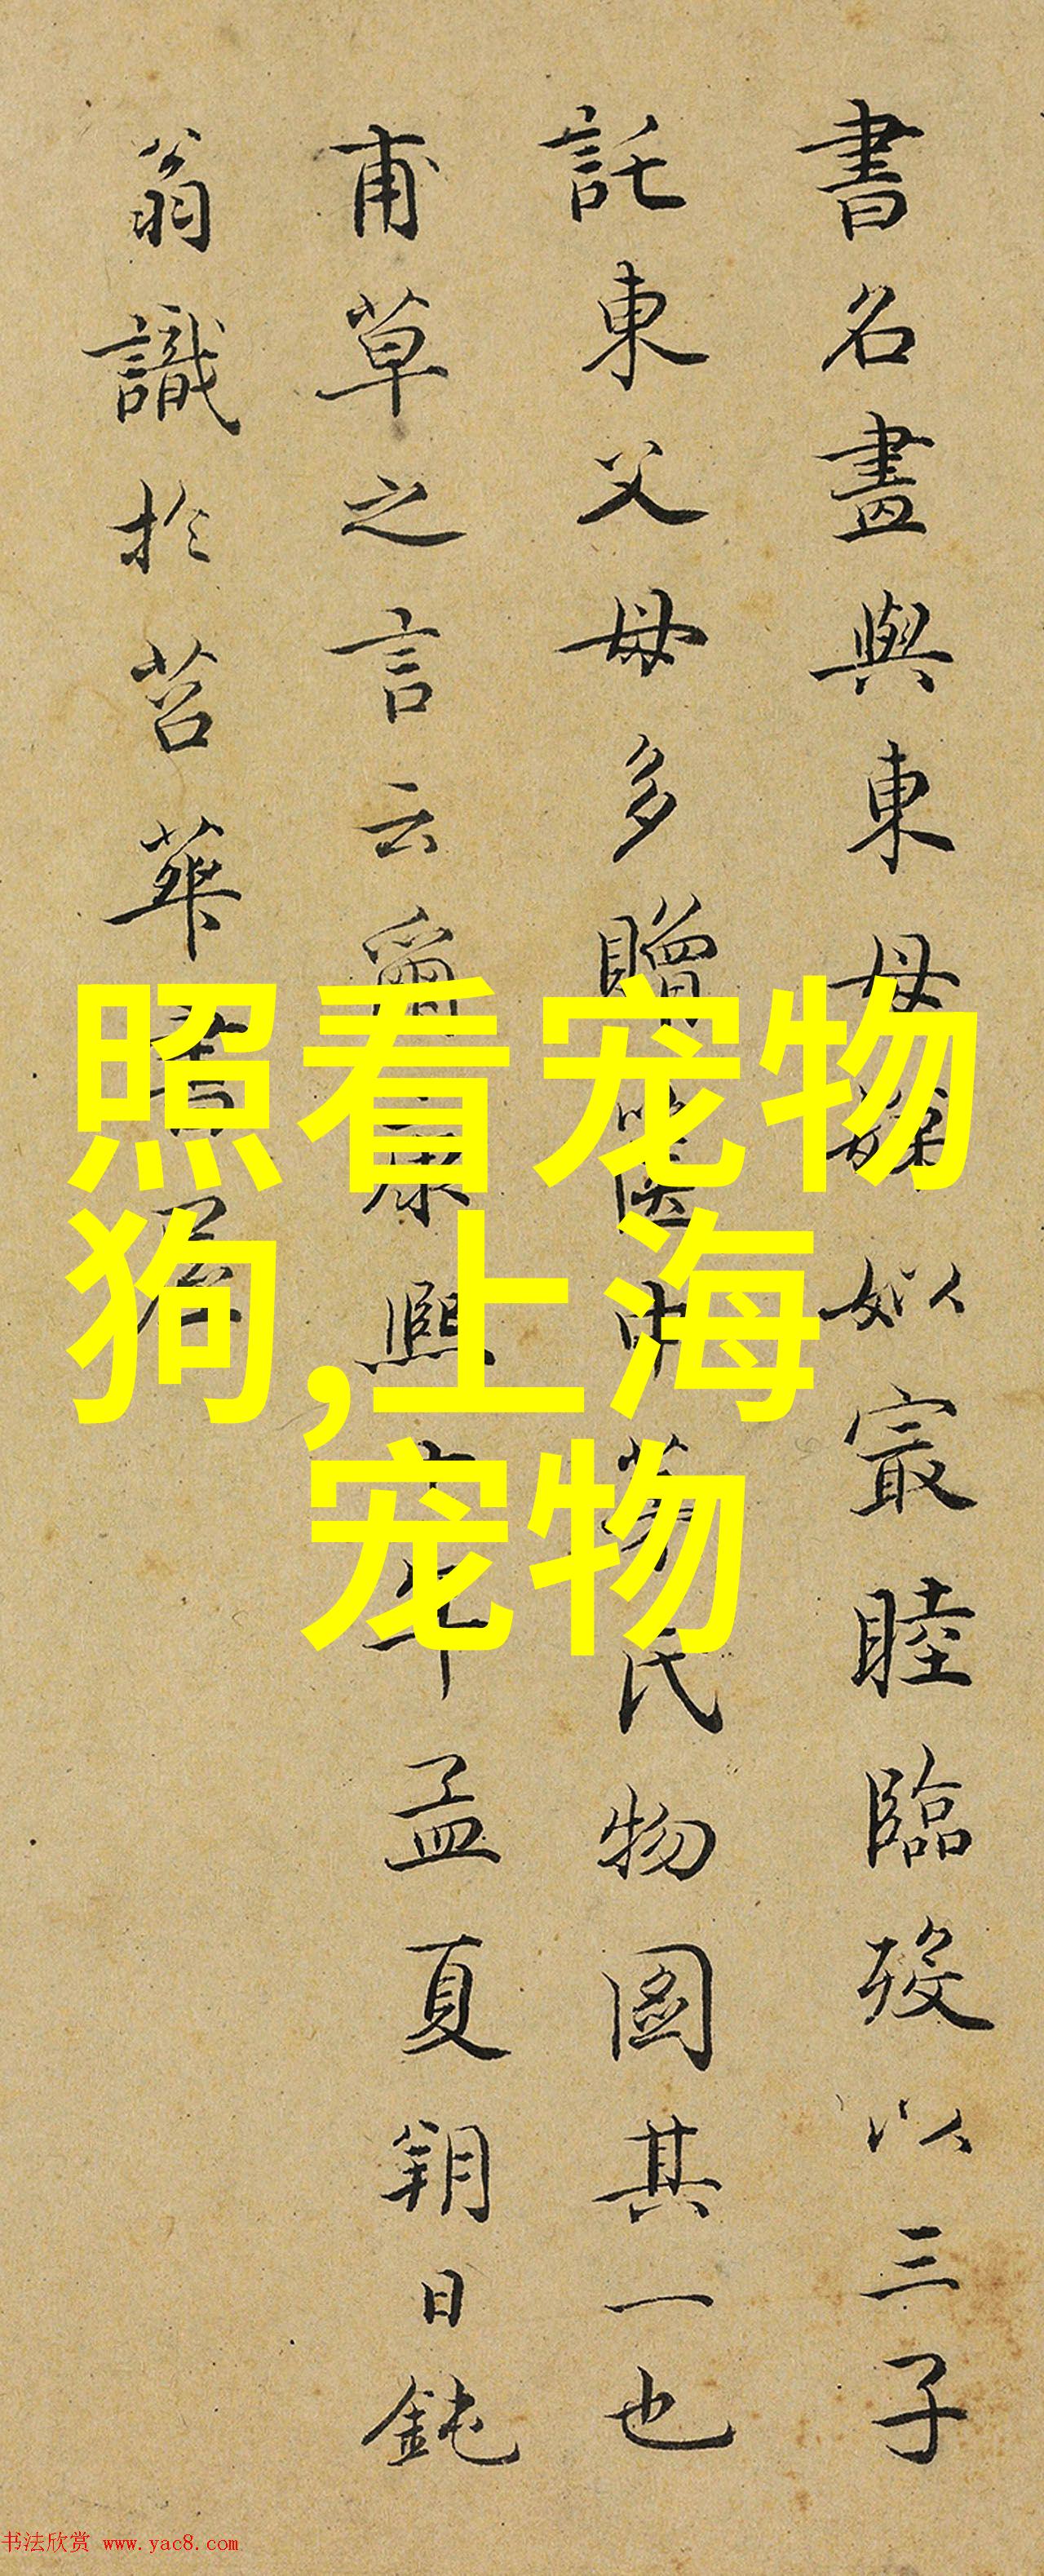 書名畫與東母嫂如以寂睦臨歿以三子
託東父母多贈醫中蔡氏物圖其一也
甫草之言云爾康熙十年孟夏朔日鈍
翁識於苕華書屋
照看宠物
狗,上海
宠物
书法欣赏 www.yac8.com